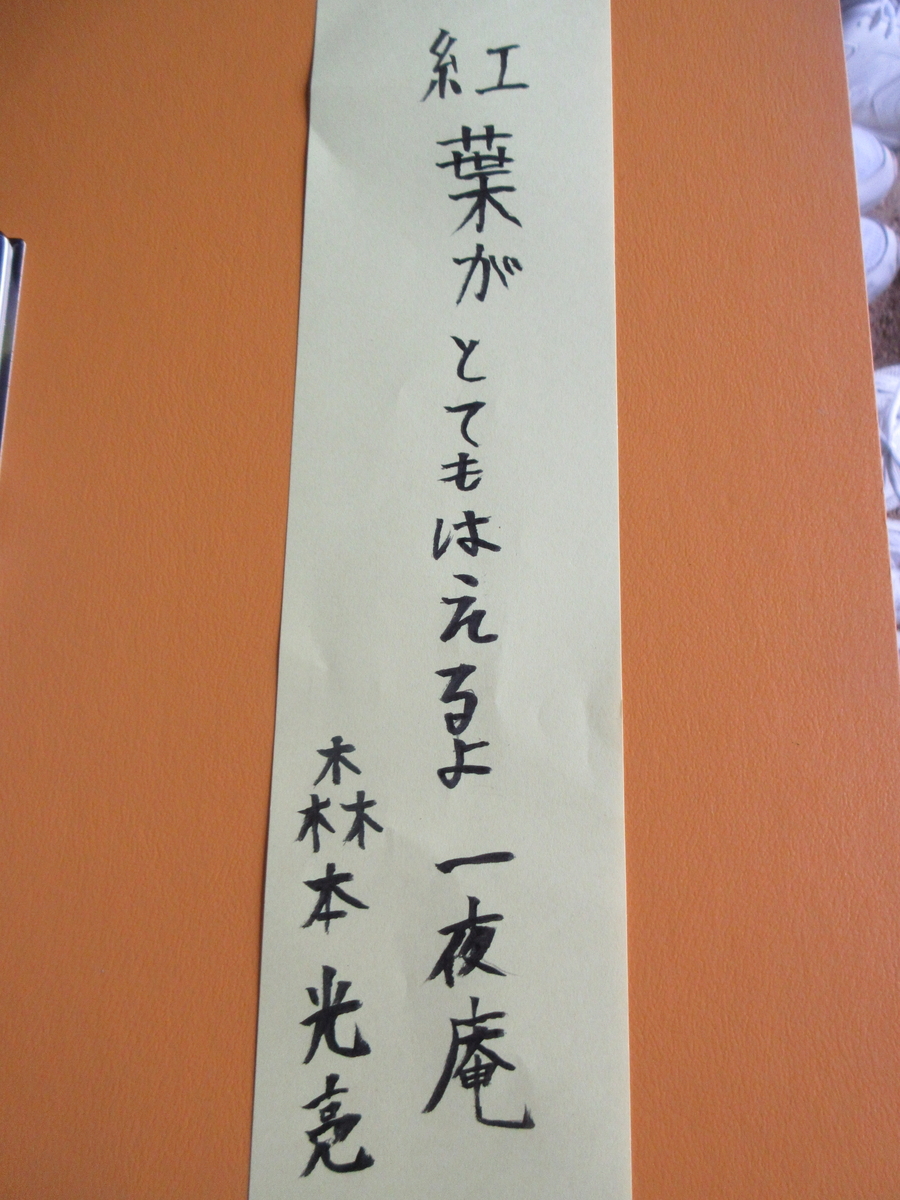 紅葉がとてもはえるよ一夜庵
森本光亮